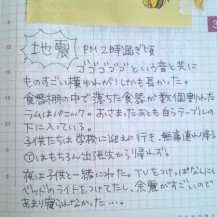 地震 PM2時過ぎ頃
ゴゴゴゴゴという音と共に
ものすごい横ゆれが!しかも長かった。
食器棚の中で落ちた食器が数個割れた
ラムはパニック。おさまった後も自らテーブルの
下に入っている。
子供たちは学校に迎えに行き、無事連れ帰る
はもちろん出張先から帰れず。
夜は子供と一緒にねた。TVもつけっぱなしにし
ベッドのライトもつけてたし、余震がすごいので
あまり寝られなかった…。